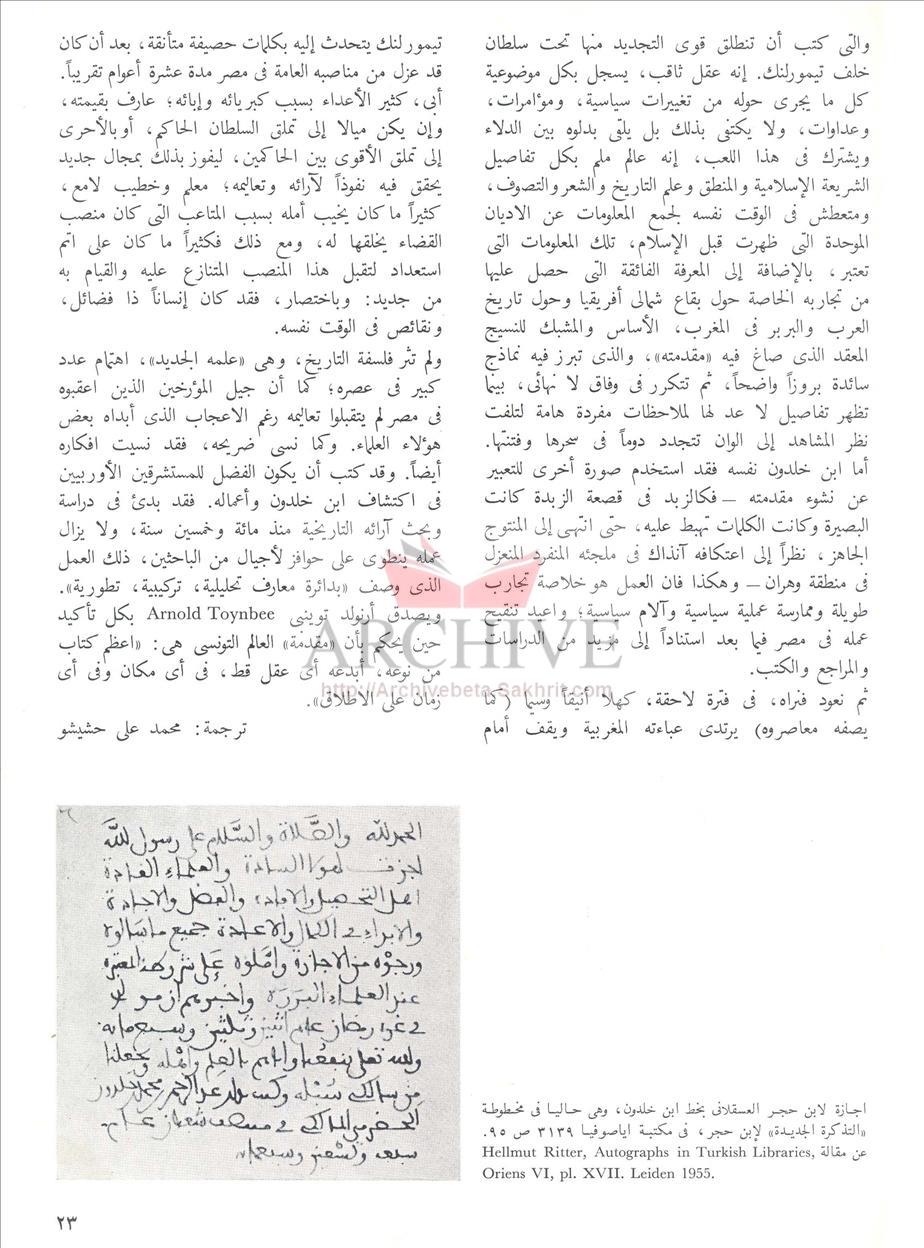 والتى كتب أن تنطلق قوى التجديد منها تحت سلطان
خلف تيمورلنك. إنه عقل ثاقب، يسجل بكل موضوعية
كل ما يجرى حوله من تغييرات سياسية، ومؤامرات،
وعداوات، ولا يكتفى بذلك بل يلقى بدلوه بين الدلاء
ويشترك فى هذا اللعب، إنه عالم ملم بكل تفاصيل
الشريعة الإسلامية والمنطق وعلم التاريخ والشعر والتصوف،
ومتعطش فى الوقت نفسه لجمع المعلومات عن الاديان
الموحدة التى ظهرت قبل الإسلام، تلك المعلومات التى
تعتبر، بالإضافة إلى المعرفة الفائقة التى حصل عليها
من تجاربه الخاصة حول بقاع شمالى أفريقيا وحول تاريخ
العرب والبربر فى المغرب، الأساس والمشبك للنسيج
المعقد الذى صاغ فيه «مقدمته»، والذى تبرز فيه نماذج
سائدة بروزاً واضحاً، ثم تتكرر فى وفاق لا نهائى، بينما
تظهر تفاصيل لا عد لها لملاحظات مفردة هامة لتلفت
نظر المشاهد إلى الوان تتجدد دوماً فى سحرها وفتنتها.
أما ابن خلدون نفسه فقد استخدم صورة أخرى للتعبير
عن نشوء مقدمته – فكالزبد فى قصعة الزبدة كانت
البصيرة وكانت الكلمات تهبط عليه، حتى انتهى إلى المنتوج
الجاهز، نظراً إلى اعتكافه آنذاك فى ملجئه المنفرد المنعزل
فى منطقة وهران – وهكذا فان العمل هو خلاصة تجارب
طويلة وممارسة عملية سياسية وآلام سياسية؛ واعيد تنقيح
عمله فى مصر فيما بعد استناداً إلى مزيد من الدراسات
والمراجع والكتب.
ثم نعود فنراه، فى فترة لاحقة، كهلا أنيقاً وسيما (كما
يصفه معاصروه) يرتدى عباءته المغربية ويقف أمام
تيمورلنك يتحدث إليه بكلمات حصيفة متأنقة، بعد أن كان
قد عزل من مناصبه العامة فى مصر مدة عشرة أعوام تقريباً.
أبى، كثير الأعداء بسبب كبريائه وإبائه؛ عارف بقيمته،
وإن يكن ميالا إلى تملق السلطان الحاكم، أو بالأحرى
إلى تملق الأقوى بين الحاكمين، ليفوز بذلك بمجال جديد
يحقق فيه نفوذاً لآرائه وتعاليمه؛ معلم وخطيب لامع،
كثيراً ما كان يخيب أمله بسبب المتاعب التى كان منصب
القضاء يخلقها له، ومع ذلك فكثيراً ما كان على اتم
استعداد لتقبل هذا المنصب المتنازع عليه والقيام به
من جديد: وباختصار، فقد كان إنساناً ذا فضائل،
ونقائص فى الوقت نفسه.
ولم تثر فلسفة التاريخ، وهى «علمه الجديد»، اهتمام عدد
كبير فى عصره؛ كما أن جيل المؤرخين الذين اعقبوه
فى مصر لم يتقبلوا تعاليمه رغم الاعجاب الذى أبداه بعض
هؤلاء العلماء. وكما نسى ضريحه، فقد نسيت افكاره
أيضاً. وقد كتب أن يكون الفضل للمستشرقين الأوربيين
فى اكتشاف ابن خلدون وأعماله. فقد بدئ فى دراسة
وبحث آرائه التاريخية منذ مائة وخمسين سنة، ولا يزال
عمله ينطوى على حوافز لأجيال من الباحثين، ذلك العمل
الذى وصف «بدائرة معارف تحليلية، تركيبية، تطورية».
ويصدق أرنولد توينبى Arnold Toynbee بكل تأكيد
حين يحكم بأن «مقدمة» العالم التونسى هى: «اعظم كتاب
من نوعه، أبدعه أى عقل قط، فى أى مكان وفى أى
زمان على الاطلاق».
ترجمة: محمد على حشيشو
ARCHIVE
http://Archivebeta.Sakhrit.com
الحمد لله والصَّلاة والسَّلام على رسول الله
اجزت لهولا السادة والعلماء القادة
اهل التحصيل والافادة والفضل والاجادة
والابداء فى الكمال والاعادة جميع ما سالوه
ورجوه من الاجازة وامَّلوه
عند العلماء البررة واخبرهم ان مولدى
فى غرة رمضان عام اثنين وثلثين وسبعمايه
والله تعلى ينفعنا واياهم بالعلم واهله ويجعلنا
من سالكى سُبُله وكتب عبد الرحمن بن محمد بن خلدون
الحضرمى المالكى فى منتصف شعبان عام
سبعه وتسعين وسبعمايه
اجازة لابن حجر العسقلانى بخط ابن خلدون، وهى حاليا فى مخطوطة
«التذكرة الجديدة» لإبن حجر، فى مكتبة اياصوفيا ٣١٣٩ ص ٩٥.
عن مقالة Hellmut Ritter, Autographs in Turkish Libraries,
Oriens VI, pl. XVII. Leiden 1955.
٢٣